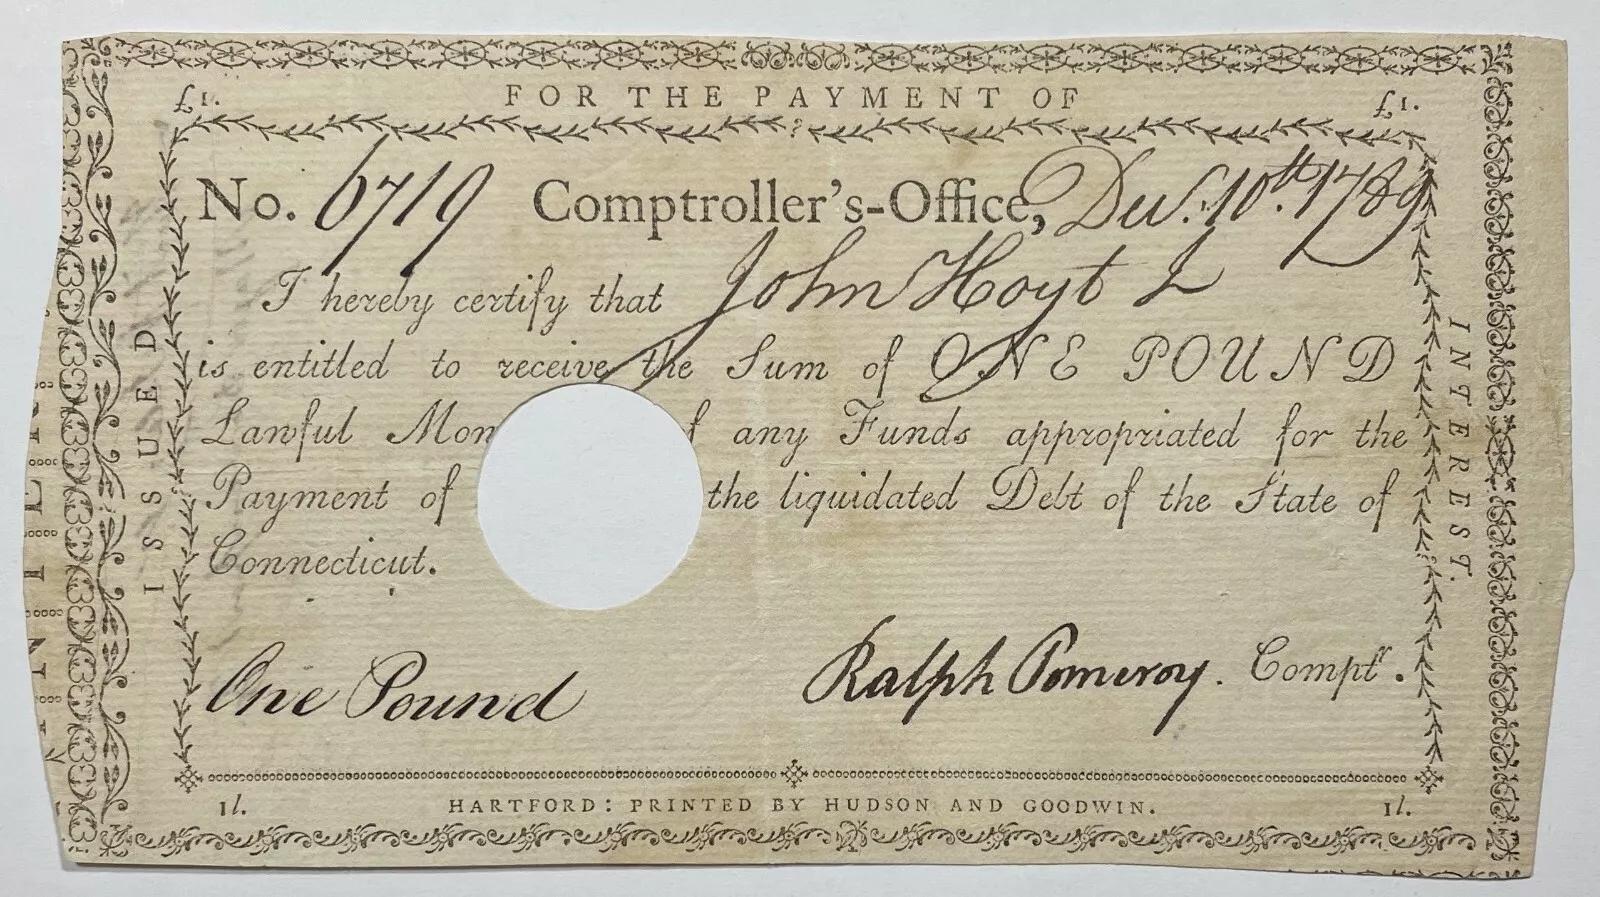 £1. FOR THE PAYMENT OF £1.
No. 6719 Comptroller's-Office, Dec. 10th. 1789
I hereby certify that John Hoyt
is entitled to receive the Sum of ONE POUND
Lawful Mon f any Funds appropriated for the
Payment of the liquidated Debt of the State of
Connecticut.
One Pound Ralph Pomeroy. Comptr.
1l. HARTFORD: PRINTED BY HUDSON AND GOODWIN. 1l.
ISSUED
INTEREST.